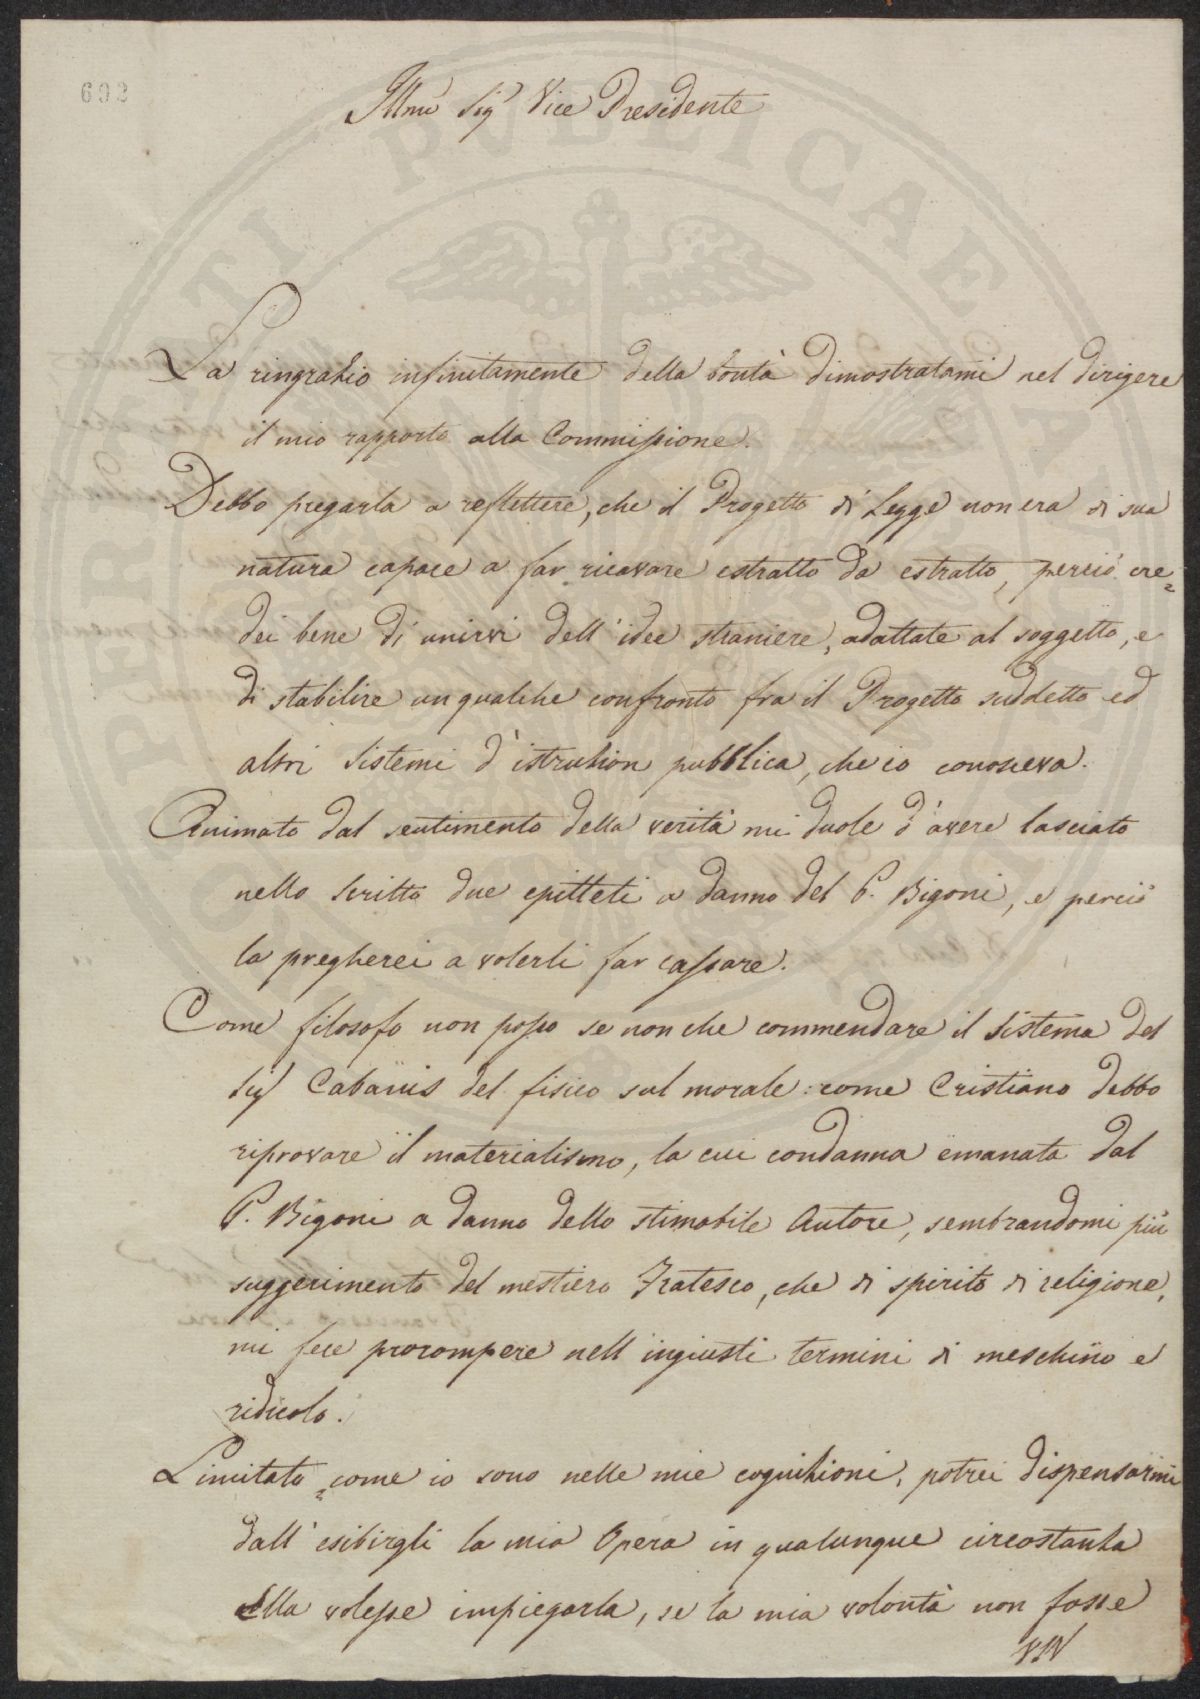 692
Illmo Sigr Vice Presidente
La ringrazio infinitamente della bontà dimostratami nel dirigere
il mio rapporto alla Commissione.
Debbo pregarla a reflettere, che il Progetto di Legge non era di sua
natura capace a far ricavare estratto da estratto, perciò cre=
dei bene di unirvi dell'idee straniere, adattate al soggetto, e
di stabilire un qualche confronto fra il Progetto suddetto ed
altri sistemi d'istruzion pubblica, che io conosceva.
Animato dal sentimento della verità mi duole d'avere lasciato
nello scritto due epitteti a danno del P. Bigoni, e perciò
la pregherei a volerli far cassare.
Come filosofo non posso se non che commendare il sistema del
Sigr Cabanis del fisico sul morale: come Cristiano debbo
riprovare il materialismo, la cui condanna emanata dal
P. Bigoni a danno dello stimabile Autore, sembrandomi più
suggerimento del mestiero Fratesco, che di spirito di religione,
mi fece prorompere nell'ingiusti termini di meschino e
ridicolo.
Limitato come io sono nelle mie cognizioni, potrei dispensarmi
dall'esibirgli la mia Opera in qualunque circostanza
Ella volesse impiegarla, se la mia volontà non fosse